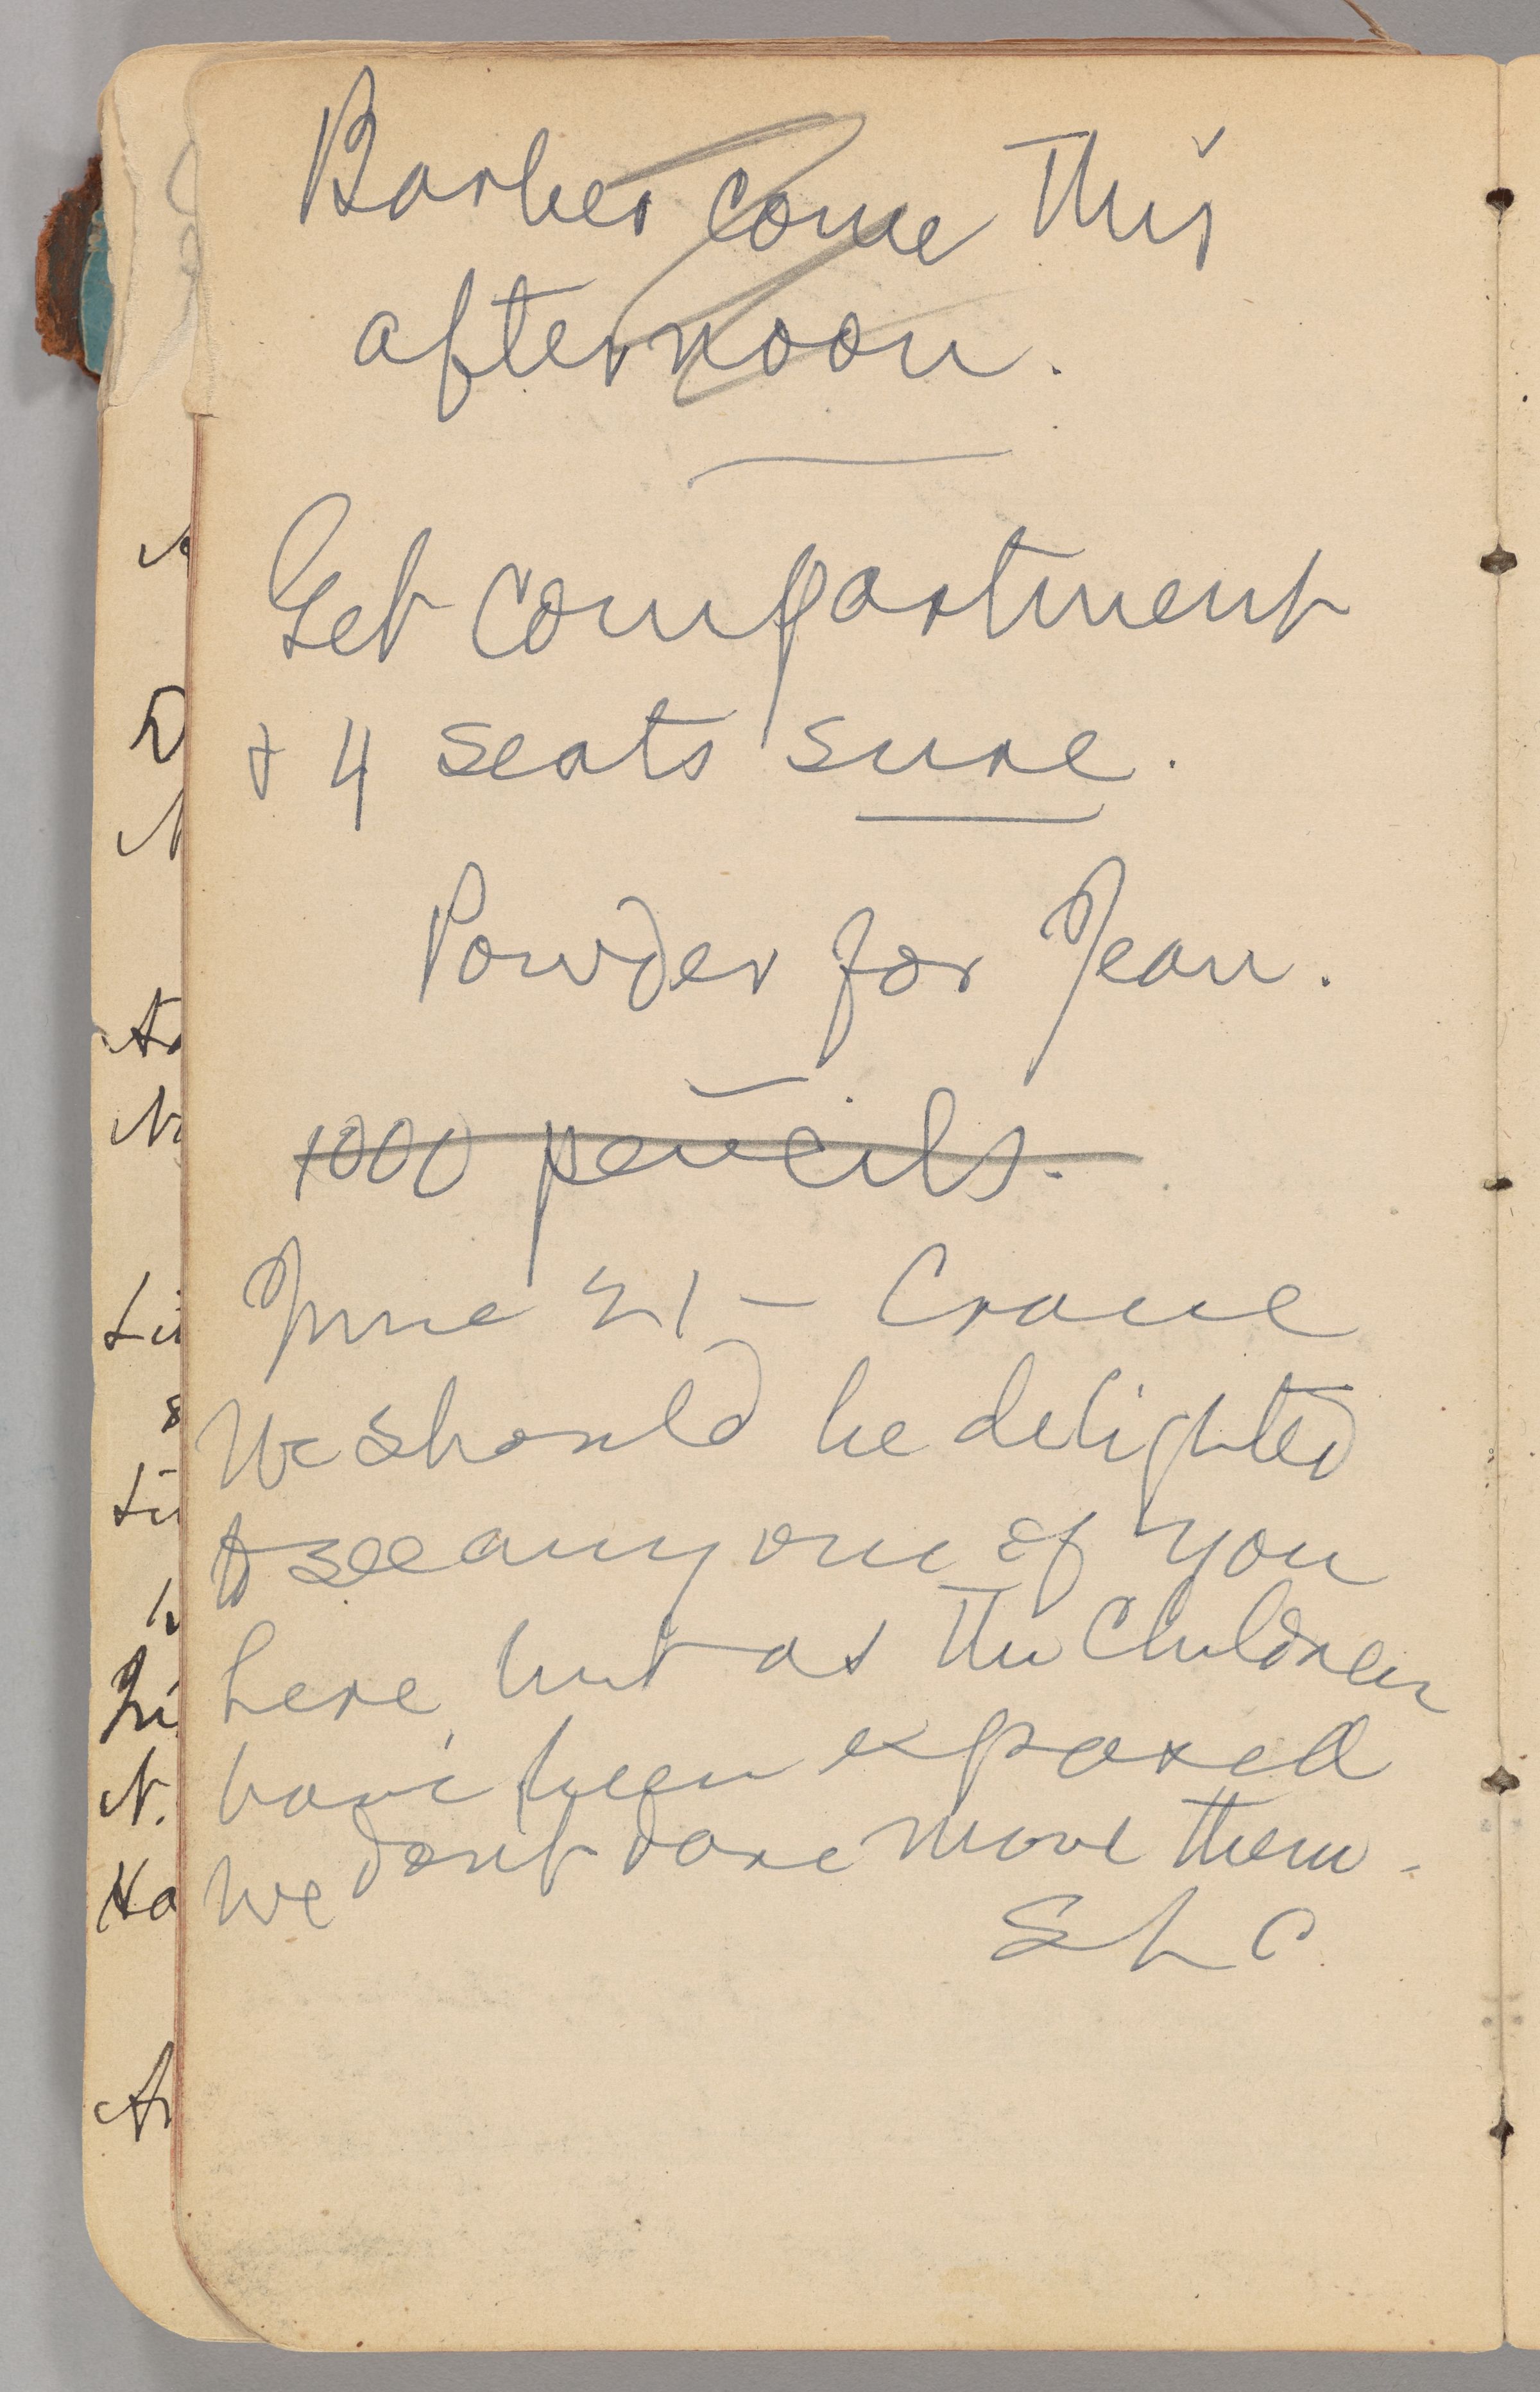 Barber come this
afternoon.
Get compartment
& 4 seats sure.
Powder for Jean.
1000 pencils.
June 21 — Crane
We should be delighted
to see any one of you
here, but as the Children
have been exposed
we dont dare move them.
S L C